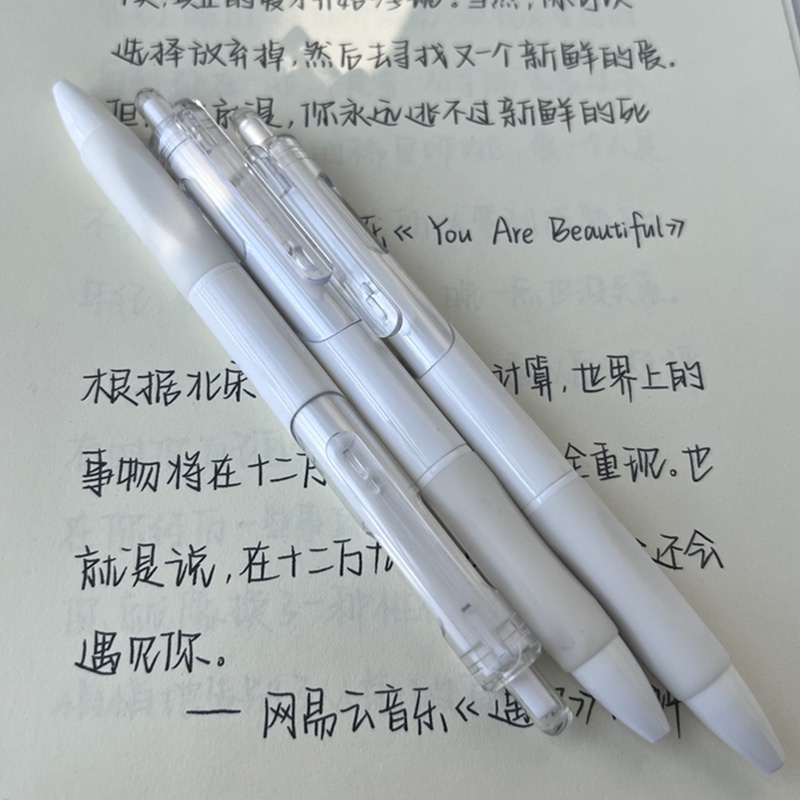 选择放弃掉,然后去寻找又一个新鲜的爱。
但 就是,你永远逃不过新鲜的死
乐《 You Are Beautiful》
根据北宋 计算,世界上的
事物将在十二万 全重现。也
就是说,在十二万九 还会
遇见你。
— 网易云音乐《遇 》